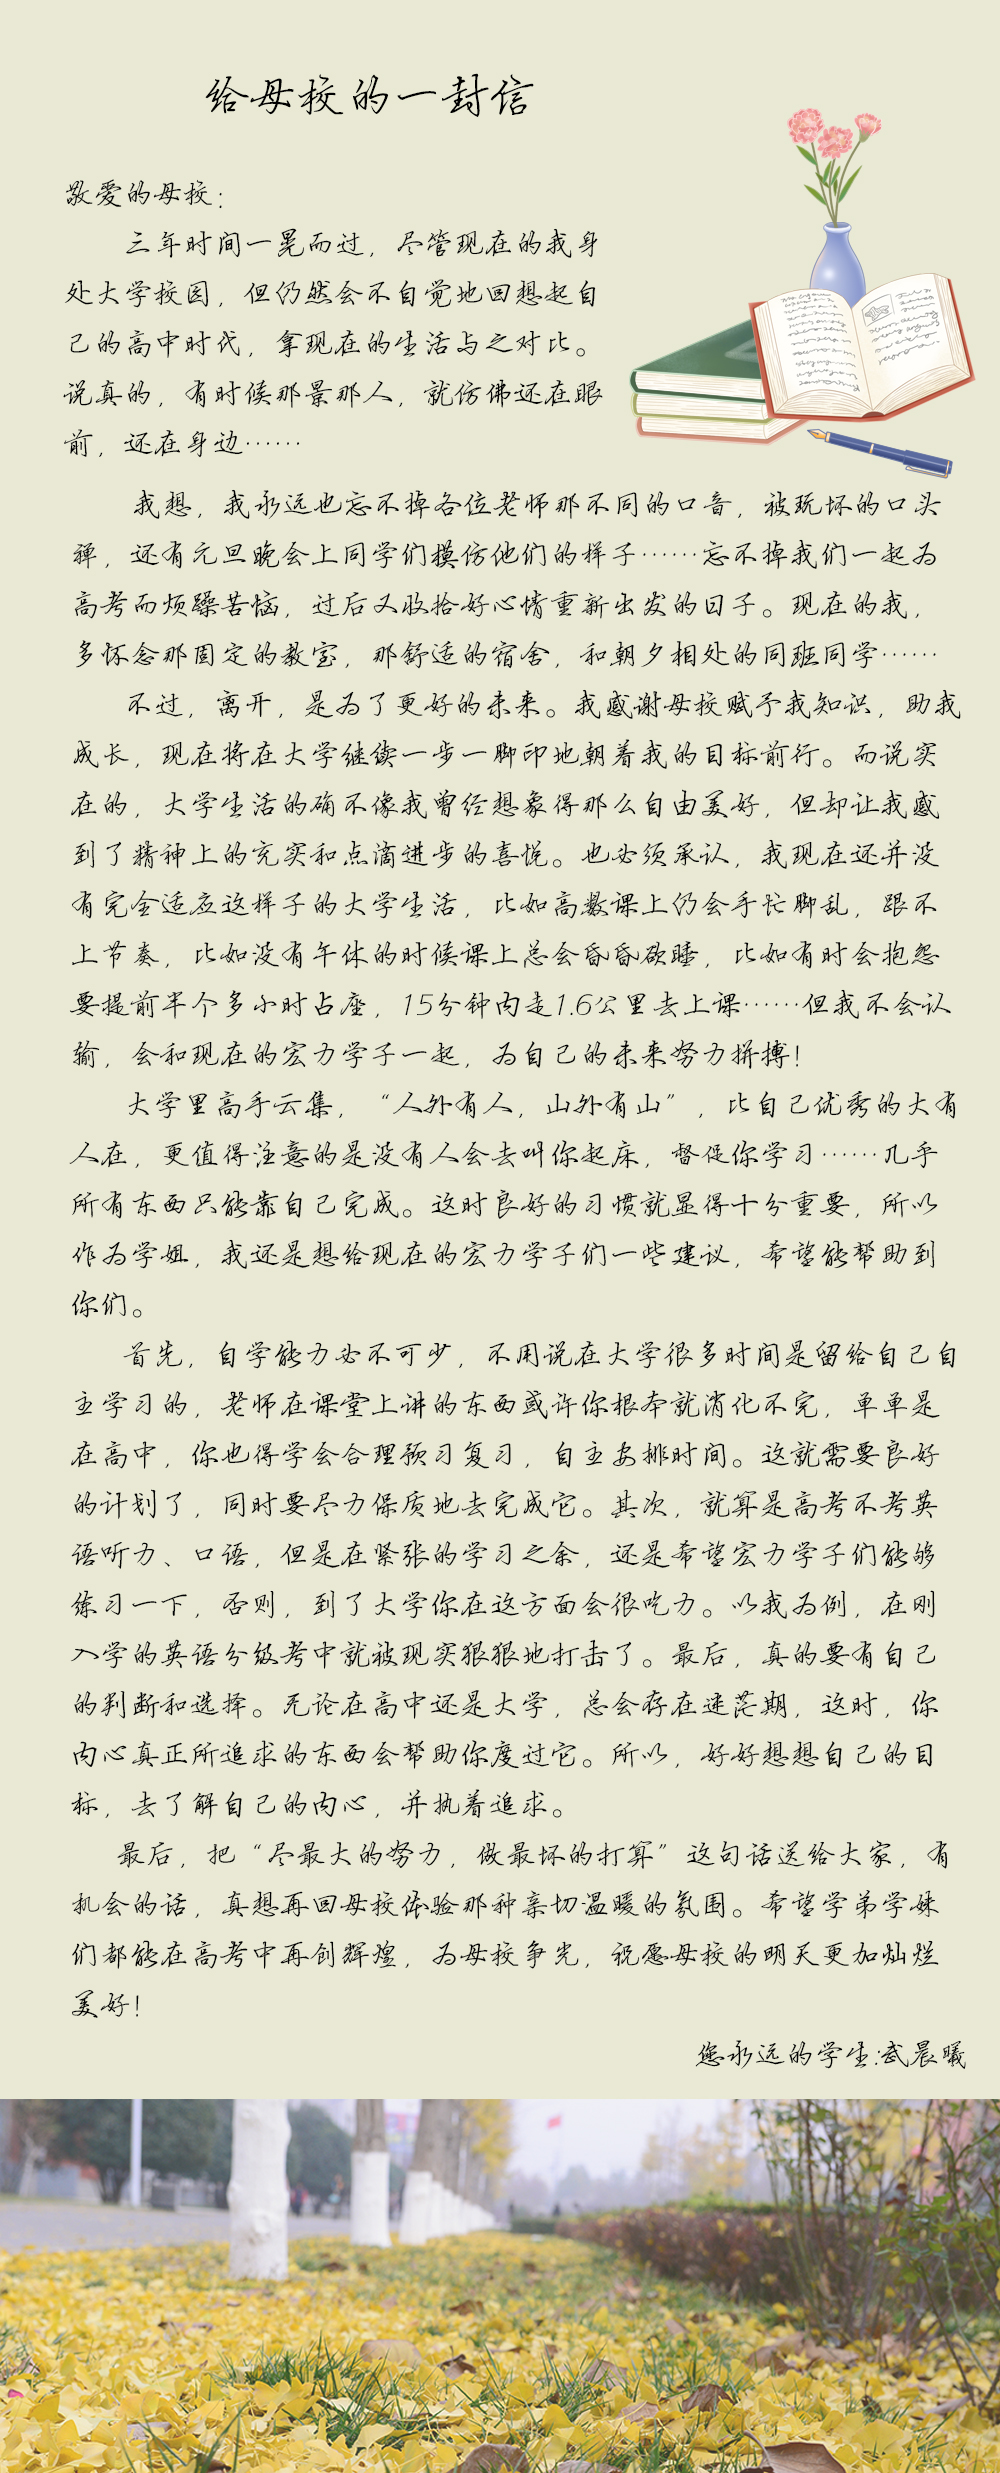 给母校的一封信
敬爱的母校：
三年时间一晃而过，尽管现在的我身
处大学校园，但仍然会不自觉地回想起自
己的高中时代，拿现在的生活与之对比。
说真的，有时候那景那人，就仿佛还在眼
前，还在身边……
我想，我永远也忘不掉各位老师那不同的口音，被玩坏的口头
禅，还有元旦晚会上同学们模仿他们的样子……忘不掉我们一起为
高考而烦躁苦恼，过后又收拾好心情重新出发的日子。现在的我，
多怀念那固定的教室，那舒适的宿舍，和朝夕相处的同班同学……
不过，离开，是为了更好的未来。我感谢母校赋予我知识，助我
成长，现在将在大学继续一步一脚印地朝着我的目标前行。而说实
在的，大学生活的确不像我曾经想象得那么自由美好，但却让我感
到了精神上的充实和点滴进步的喜悦。也必须承认，我现在还并没
有完全适应这样子的大学生活，比如高数课上仍会手忙脚乱，跟不
上节奏，比如没有午休的时候课上总会昏昏欲睡，比如有时会抱怨
要提前半个多小时占座，15分钟内走1.6公里去上课……但我不会认
输，会和现在的宏力学子一起，为自己的未来努力拼搏！
大学里高手云集，“人外有人，山外有山”，比自己优秀的大有
人在，更值得注意的是没有人会去叫你起床，督促你学习……几乎
所有东西只能靠自己完成。这时良好的习惯就显得十分重要，所以
作为学姐，我还是想给现在的宏力学子们一些建议，希望能帮助到
你们。
首先，自学能力必不可少，不用说在大学很多时间是留给自己自
主学习的，老师在课堂上讲的东西或许你根本就消化不完，单单是
在高中，你也得学会合理预习复习，自主安排时间。这就需要良好
的计划了，同时要尽力保质地去完成它。其次，就算是高考不考英
语听力、口语，但是在紧张的学习之余，还是希望宏力学子们能够
练习一下，否则，到了大学你在这方面会很吃力。以我为例，在刚
入学的英语分级考中就被现实狠狠地打击了。最后，真的要有自己
的判断和选择。无论在高中还是大学，总会存在迷茫期，这时，你
内心真正所追求的东西会帮助你度过它。所以，好好想想自己的目
标，去了解自己的内心，并执着追求。
最后，把“尽最大的努力，做最坏的打算”这句话送给大家，有
机会的话，真想再回母校体验那种亲切温暖的氛围。希望学弟学妹
们都能在高考中再创辉煌，为母校争光，祝愿母校的明天更加灿烂
美好！
您永远的学生:武晨曦